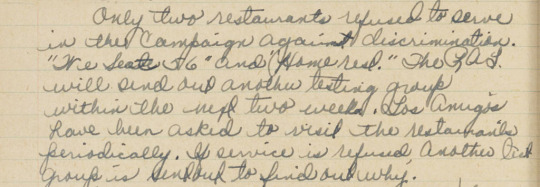 Only two restaurants refused to serve
in the Campaign against discrimination.
"We Seat 36" and "Home rest." The F.A.S.
will send out another testing group
within the next two weeks. Los Amigos
have been asked to visit the restaurants
periodically. If service is refused, Another
group is send out to find out why.